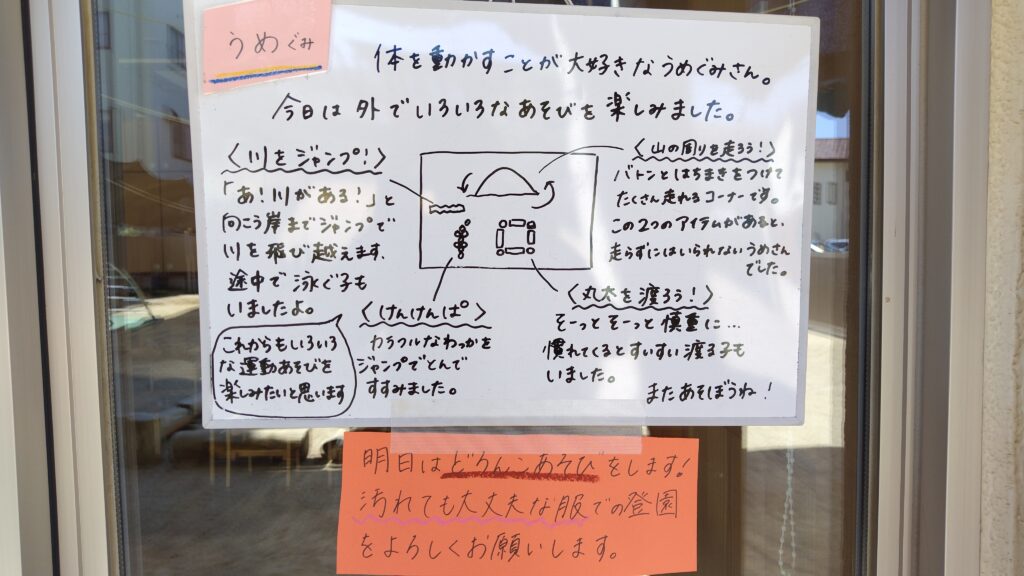 うめぐみ
体を動かすことが大好きなうめぐみさん。
今日は外でいろいろなあそびを楽しみました。
〈川をジャンプ!〉
「あ!川がある!」と
向こう岸までジャンプで
川を飛び越えます。
途中で泳ぐ子も
いましたよ。
これからもいろいろ
な運動あそびを
楽しみたいと思います
〈けんけんぱ〉
カラフルなわっかを
ジャンプでとんで
すすみました。
〈山の周りを走ろう!〉
バトンとはちまきをつけて
たくさん走れるコーナーです。
この2つのアイテムがあると、
走らずにはいられないうめさん
でした。
〈丸太を渡ろう!〉
そーっとそーっと慎重に…
慣れてくるとすいすい渡る子も
いました。
またあそぼうね!
明日はどろんこあそびをします!
汚れても大丈夫な服での登園
をよろしくお願いします。